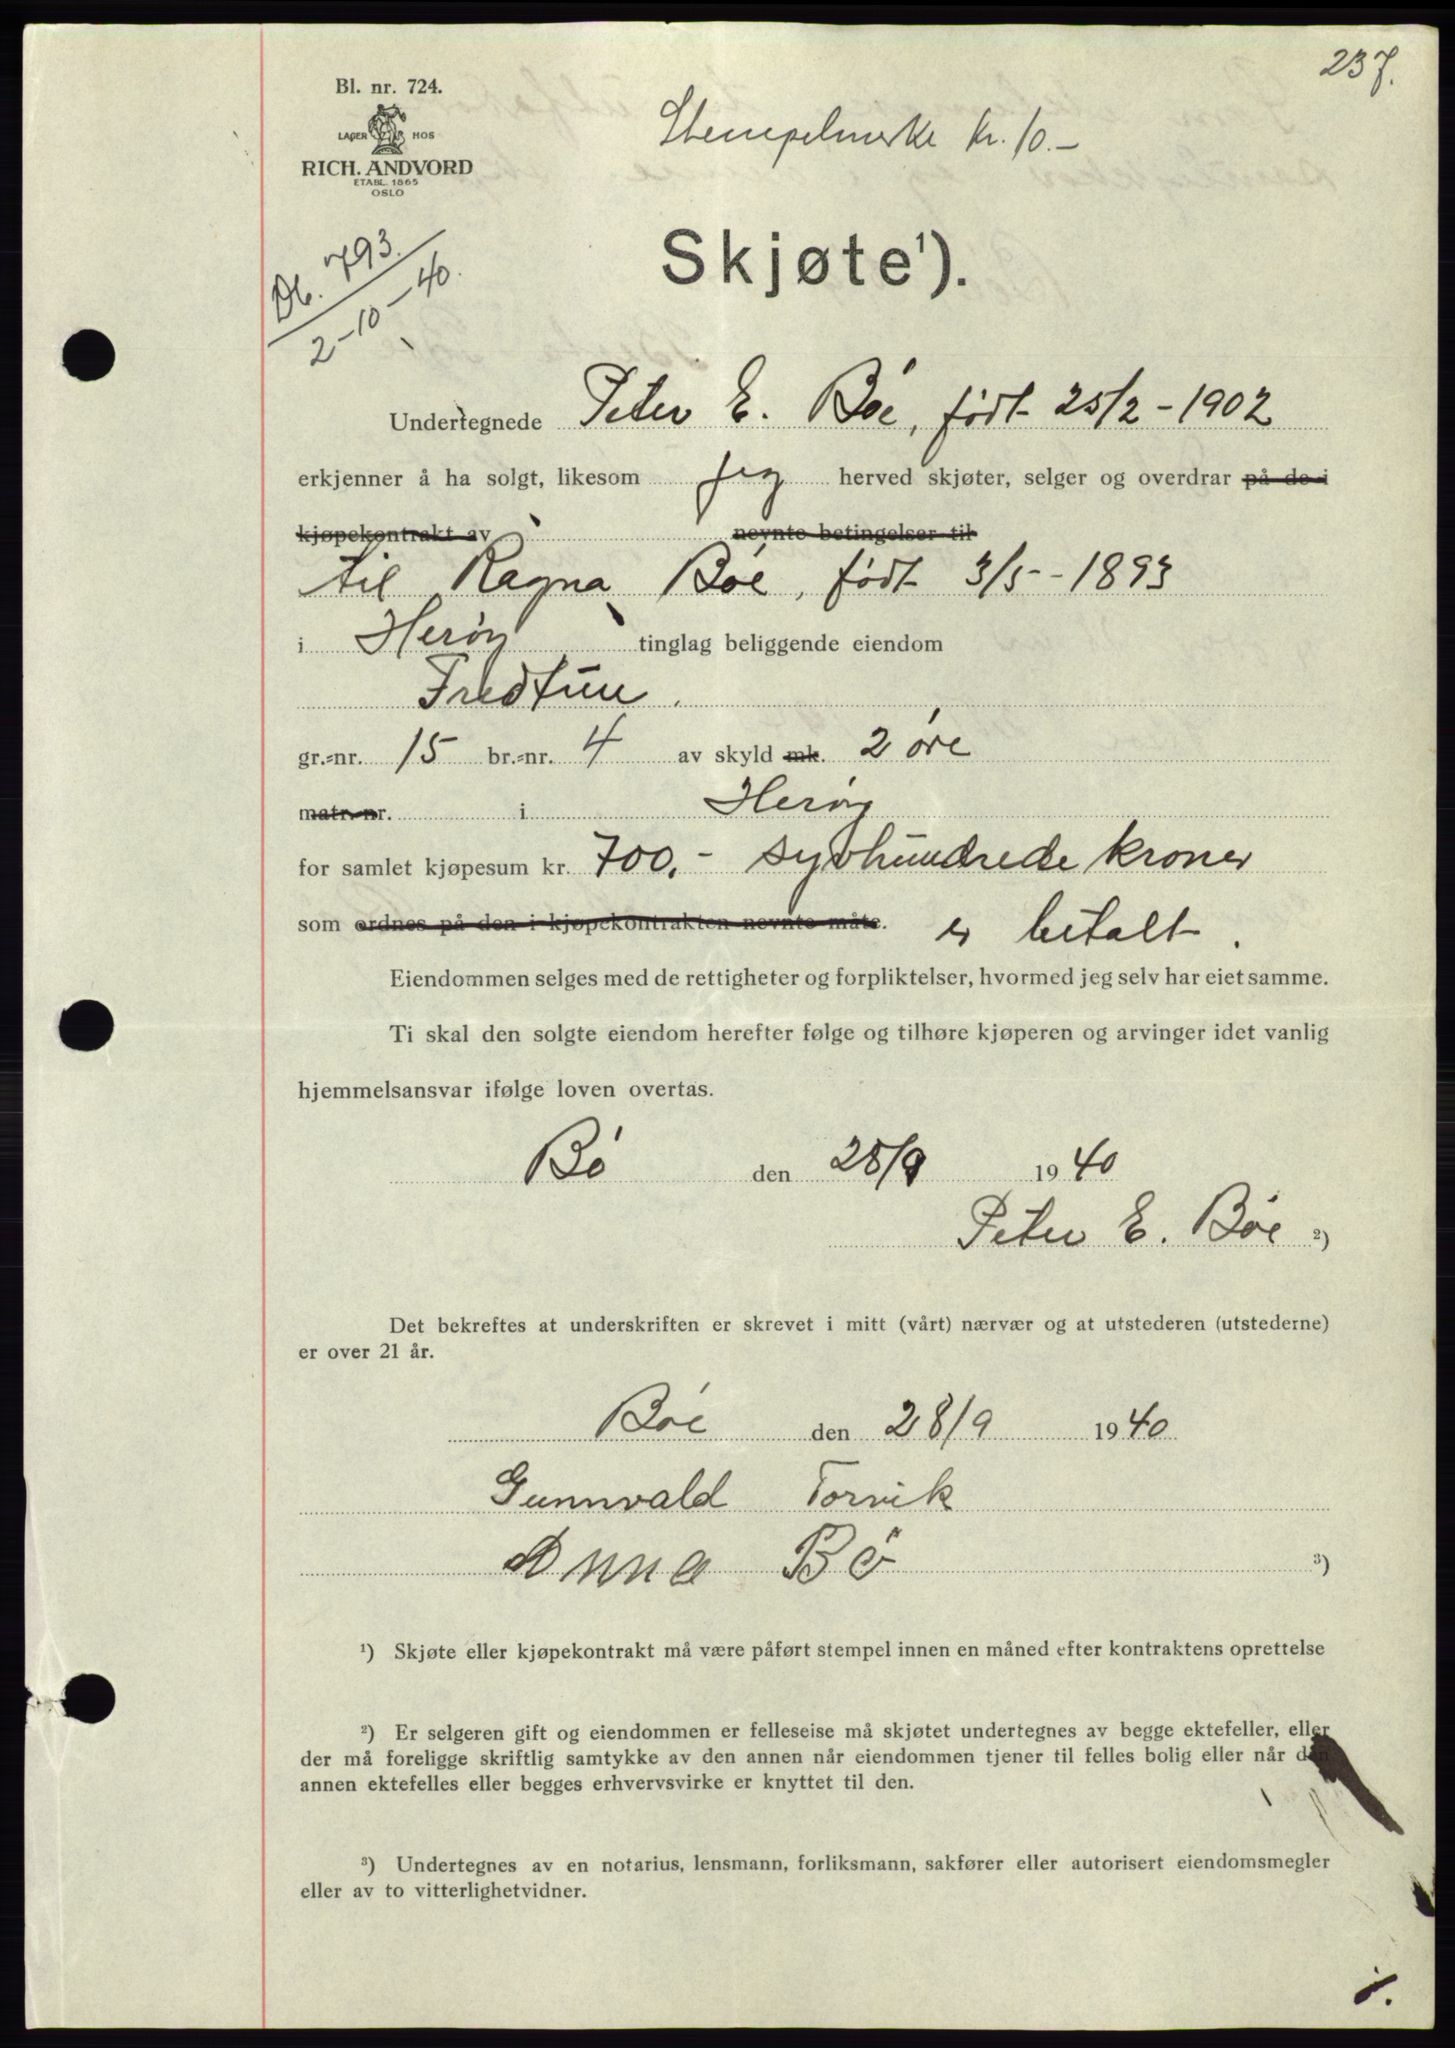 237.
Bl. nr. 724.
LAGER HOS
RICH. ANDVORD
ETABL. 1865
OSLO
Stempelmerke kr. 10.-
Db. 793.
2-10-40.
Skjøte¹).
Undertegnede Peter E. Bøe, født 25/2-1902
erkjenner å ha solgt, likesom jeg herved skjøter, selger og overdrar på de i
kjøpekontrakt av nevnte betingelser til
til Ragna Bøe, født 3/5-1893
i Herøy tinglag beliggende eiendom
Fredtun.
gr.-nr. 15 br.-nr. 4 av skyld mk. 2 øre
matr. nr. i Herøy
for samlet kjøpesum kr. 700.- syvhundrede kroner
som ordnes på den i kjøpekontrakten nevnte måte. er betalt.
Eiendommen selges med de rettigheter og forpliktelser, hvormed jeg selv har eiet samme.
Ti skal den solgte eiendom herefter følge og tilhøre kjøperen og arvinger idet vanlig
hjemmelsansvar ifølge loven overtas.
Bø den 28/9 1940
Peter E. Bøe ²)
Det bekreftes at underskriften er skrevet i mitt (vårt) nærvær og at utstederen (utstederne)
er over 21 år.
Bøe den 28/9 1940
Gunnvald Torvik
Anna Bø ³)
¹) Skjøte eller kjøpekontrakt må være påført stempel innen en måned efter kontraktens oprettelse
²) Er selgeren gift og eiendommen er felleseise må skjøtet undertegnes av begge ektefeller, eller
der må foreligge skriftlig samtykke av den annen når eiendommen tjener til felles bolig eller når den
annen ektefelles eller begges erhvervsvirke er knyttet til den.
³) Undertegnes av en notarius, lensmann, forliksmann, sakfører eller autorisert eiendomsmegler
eller av to vitterlighetvidner.